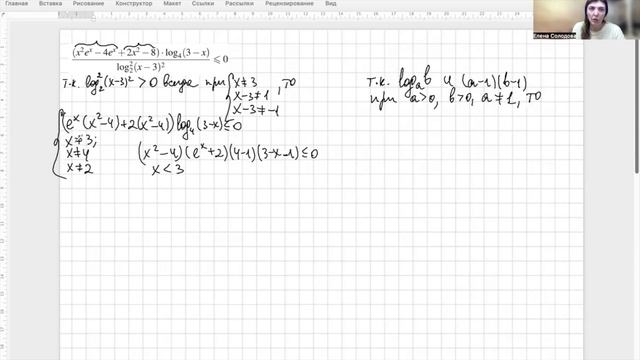 Главная Вставка Рисование Конструктор Макет Ссылки Рассылки Рецензирование Вид
(x²eˣ − 4eˣ + 2x² − 8) · log₄(3 − x)
log₂²(x − 3)²
⩽ 0
т.к. log₂²(x-3)² > 0 всегда при { x≠3
x-3≠1, то
x-3≠-1
т.к. logₐb и (a-1)(b-1)
при a>0, b>0, a≠1, то
{ (eˣ(x²-4)+2(x²-4)) log₄(3-x) ≤ 0
x≠3;
x≠4
x≠2
(x²-4)(eˣ+2)(4-1)(3-x-1) ≤ 0
x < 3
Елена Солодова